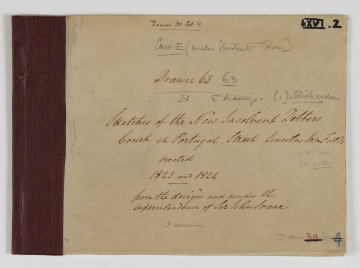 Drawer 30 Set 4
LXVI. 2
Case E (under Students Room)
Drawer 63 63
5 drawings. C. J. Richardson
Sketches of the New Insolvent Debtors'
Court in Portugal Street Lincolns Inn Fields
erected
1823 and 1824
from the designs and under the
superintendence of Sir John Soane.
5 drawings
Drawer 30 4